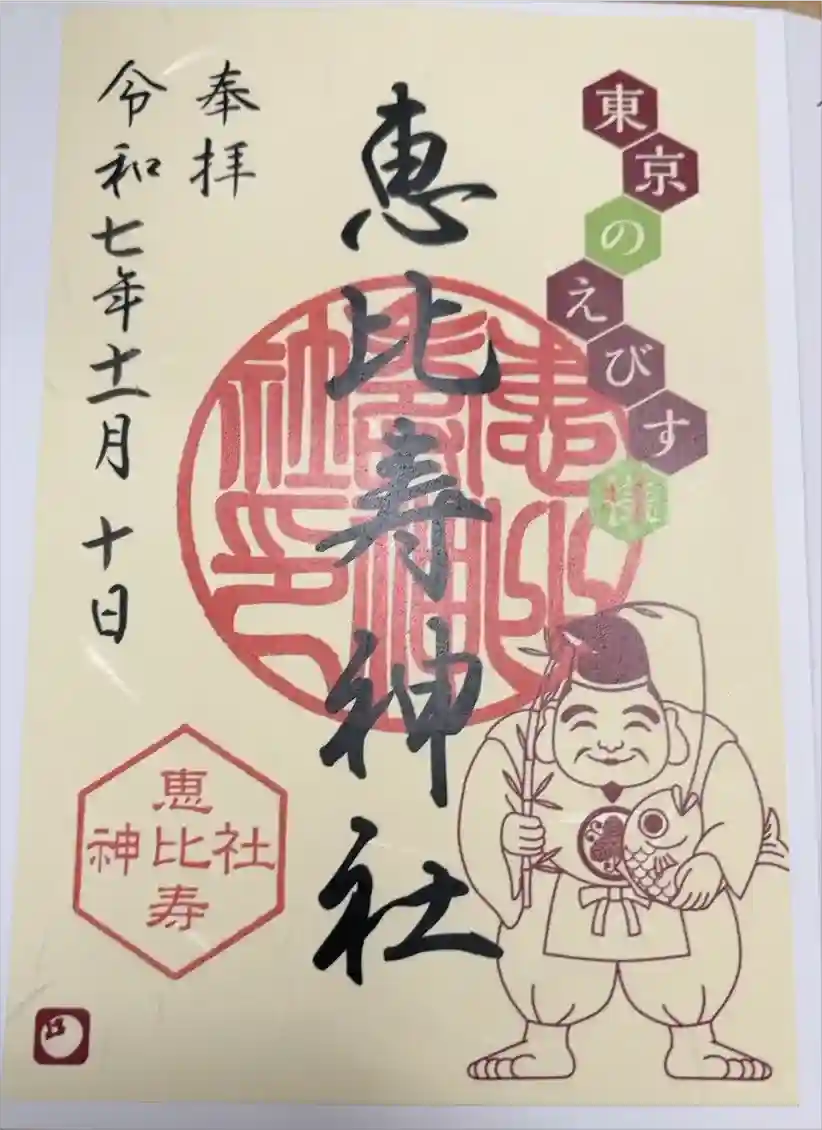 東京のえびす様
恵比寿神社
奉拝
令和七年十一月十日
恵比寿神社印
恵比寿
神社